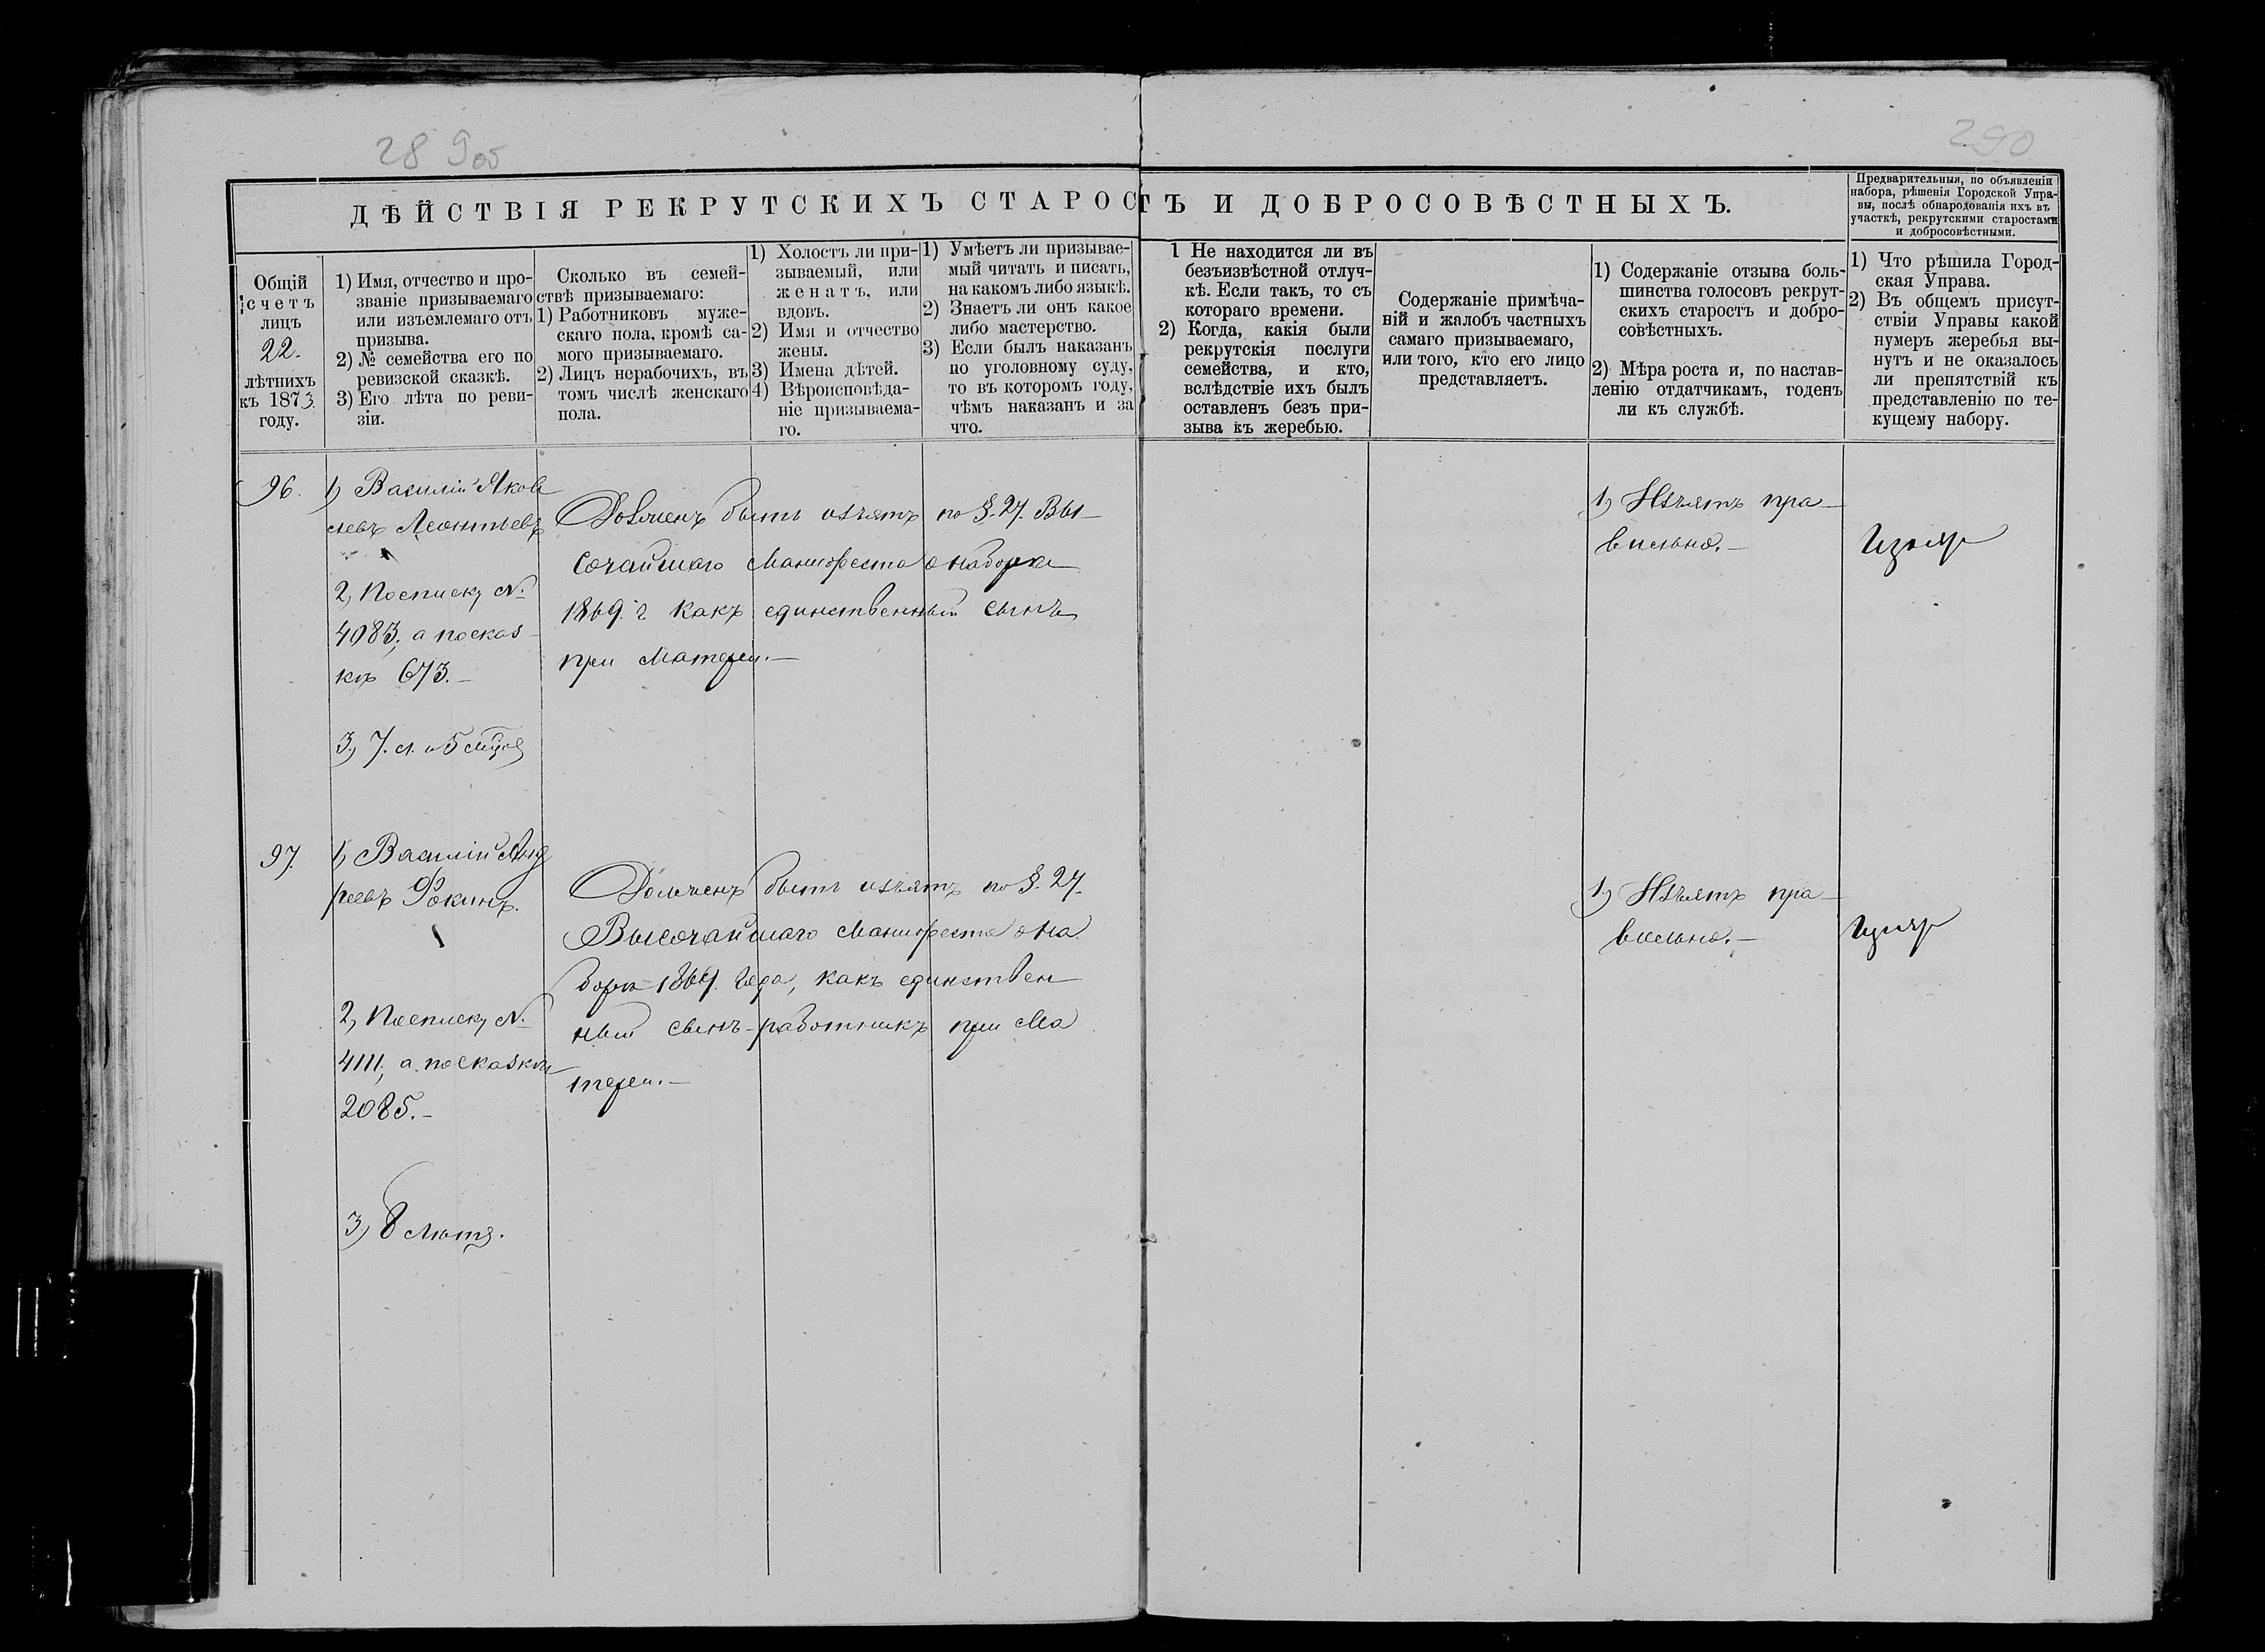 28 9об
290
ДѢЙСТВІЯ РЕКРУТСКИХЪ СТАРОСТЪ И ДОБРОСОВѢСТНЫХЪ.
Предварительныя, по объявленіи
набора, рѣшенія Городской Упра-
вы, послѣ обнародованія ихъ въ
участкѣ, рекрутскими старостами
и добросовѣстными.
Общій
счетъ
лицъ
22.
лѣтнихъ
къ 1873
году.
1) Имя, отчество и про-
званіе призываемаго
или изъемлемаго отъ
призыва.
2) № семейства его по
ревизской сказкѣ.
3) Его лѣта по реви-
зіи.
Сколько въ семей-
ствѣ призываемаго:
1) Работниковъ муже-
скаго пола, кромѣ са-
мого призываемаго.
2) Лицъ нерабочихъ, въ
томъ числѣ женскаго
пола.
1) Холостъ ли при-
зываемый, или
женатъ, или
вдовъ.
2) Имя и отчество
жены.
3) Имена дѣтей.
4) Вѣроисповѣда-
ніе призываема-
го.
1) Умѣетъ ли призывае-
мый читать и писать,
на какомъ либо языкѣ.
2) Знаетъ ли онъ какое
либо мастерство.
3) Если былъ наказанъ
по уголовному суду,
то въ которомъ году,
чѣмъ наказанъ и за
что.
1 Не находится ли въ
безъизвѣстной отлуч-
кѣ. Если такъ, то съ
котораго времени.
2) Когда, какія были
рекрутскія послуги
семейства, и кто,
вслѣдствіе ихъ былъ
оставленъ безъ при-
зыва къ жеребью.
Содержаніе примѣча-
ній и жалобъ частныхъ
самаго призываемаго,
или того, кто его лицо
представляетъ.
1) Содержаніе отзыва боль-
шинства голосовъ рекрут-
скихъ старостъ и добро-
совѣстныхъ.
2) Мѣра роста и, по настав-
ленію отдатчикамъ, годенъ
ли къ службѣ.
1) Что рѣшила Город-
ская Управа.
2) Въ общемъ присут-
ствіи Управы какой
нумеръ жеребья вы-
нутъ и не оказалось
ли препятствій къ
представленію по те-
кущему набору.
96.
1) Василій Яков
левъ Леонтьевъ
2) По списку №
4083, а по сказ
кѣ 673.–
3) 7. л. и 5 мѣс
Долженъ быть изъятъ по §. 27. Вы-
сочайшаго Манифеста о наборѣ
1869. г какъ единственный сынъ
при Матери.–
1) Изъятъ пра-
вильно.–
Изъят
97.
1) Василій Анд
реевъ Фокинъ.
2) По списку №
4111, а по сказкѣ
2085.–
3) 8 Лѣтъ.
Долженъ быть изъятъ по §. 27.
Высочайшаго Манифеста о на
борѣ 1869. года, какъ единствен
ный сынъ-работникъ при Ма
тери.–
1) Изъятъ пра-
вильно.–
Изъят